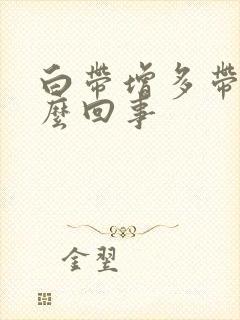 白带增多带
么回事
金翌